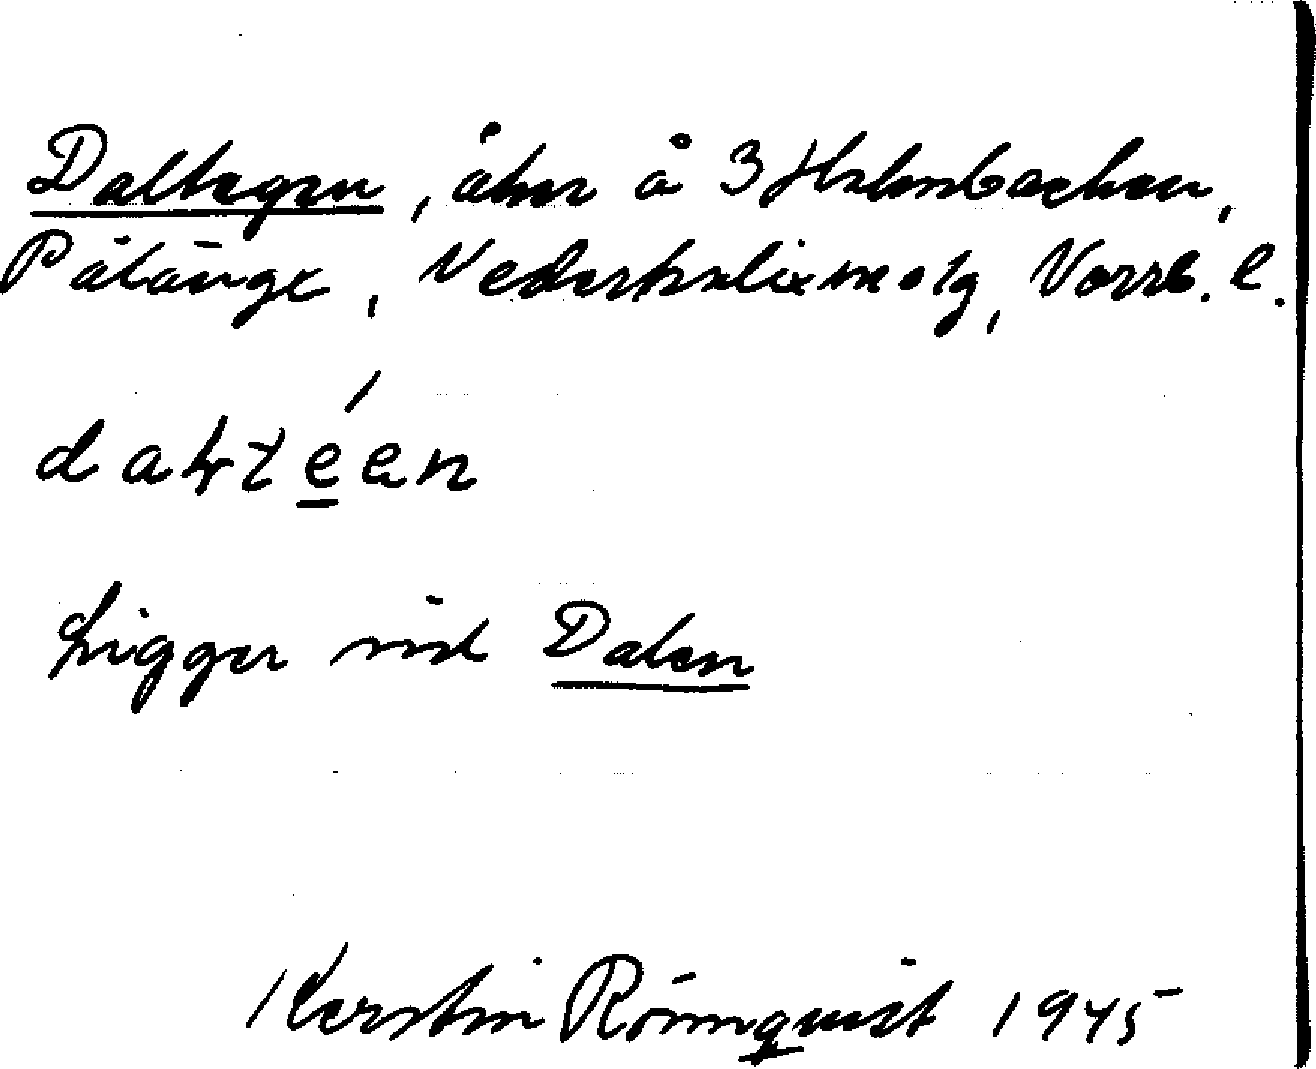 Daltegen, åker å 3 Holmbacken,
Pålänge, Nederkalix my, Norrb. l.
daɫtéen
Ligger vid Dalen
Kerstin Rönnquist 1945